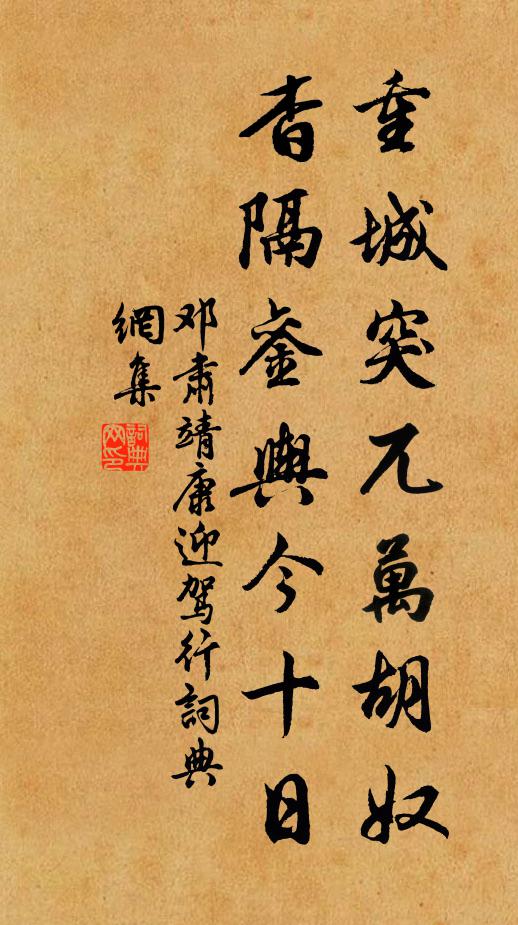 重城突兀萬胡奴
杳隔銮輿今十日
邓肅靖康迎驾行詞典
網集
詞典
网印